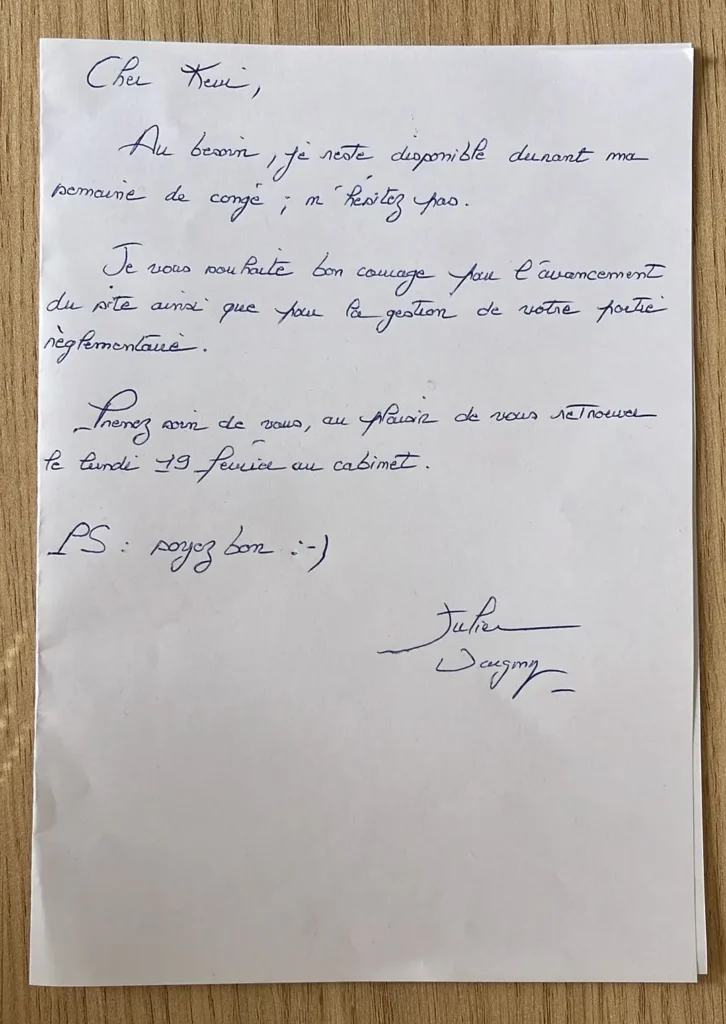 Cher Kevin,
Au besoin, je reste disponible durant ma
semaine de congé ; n'hésitez pas.
Je vous souhaite bon courage pour l'avancement
du site ainsi que pour la gestion de votre partie
règlementaire.
Prenez soin de vous, au plaisir de vous retrouver
le lundi 19 février au cabinet.
PS : soyez bon :-)
Julien